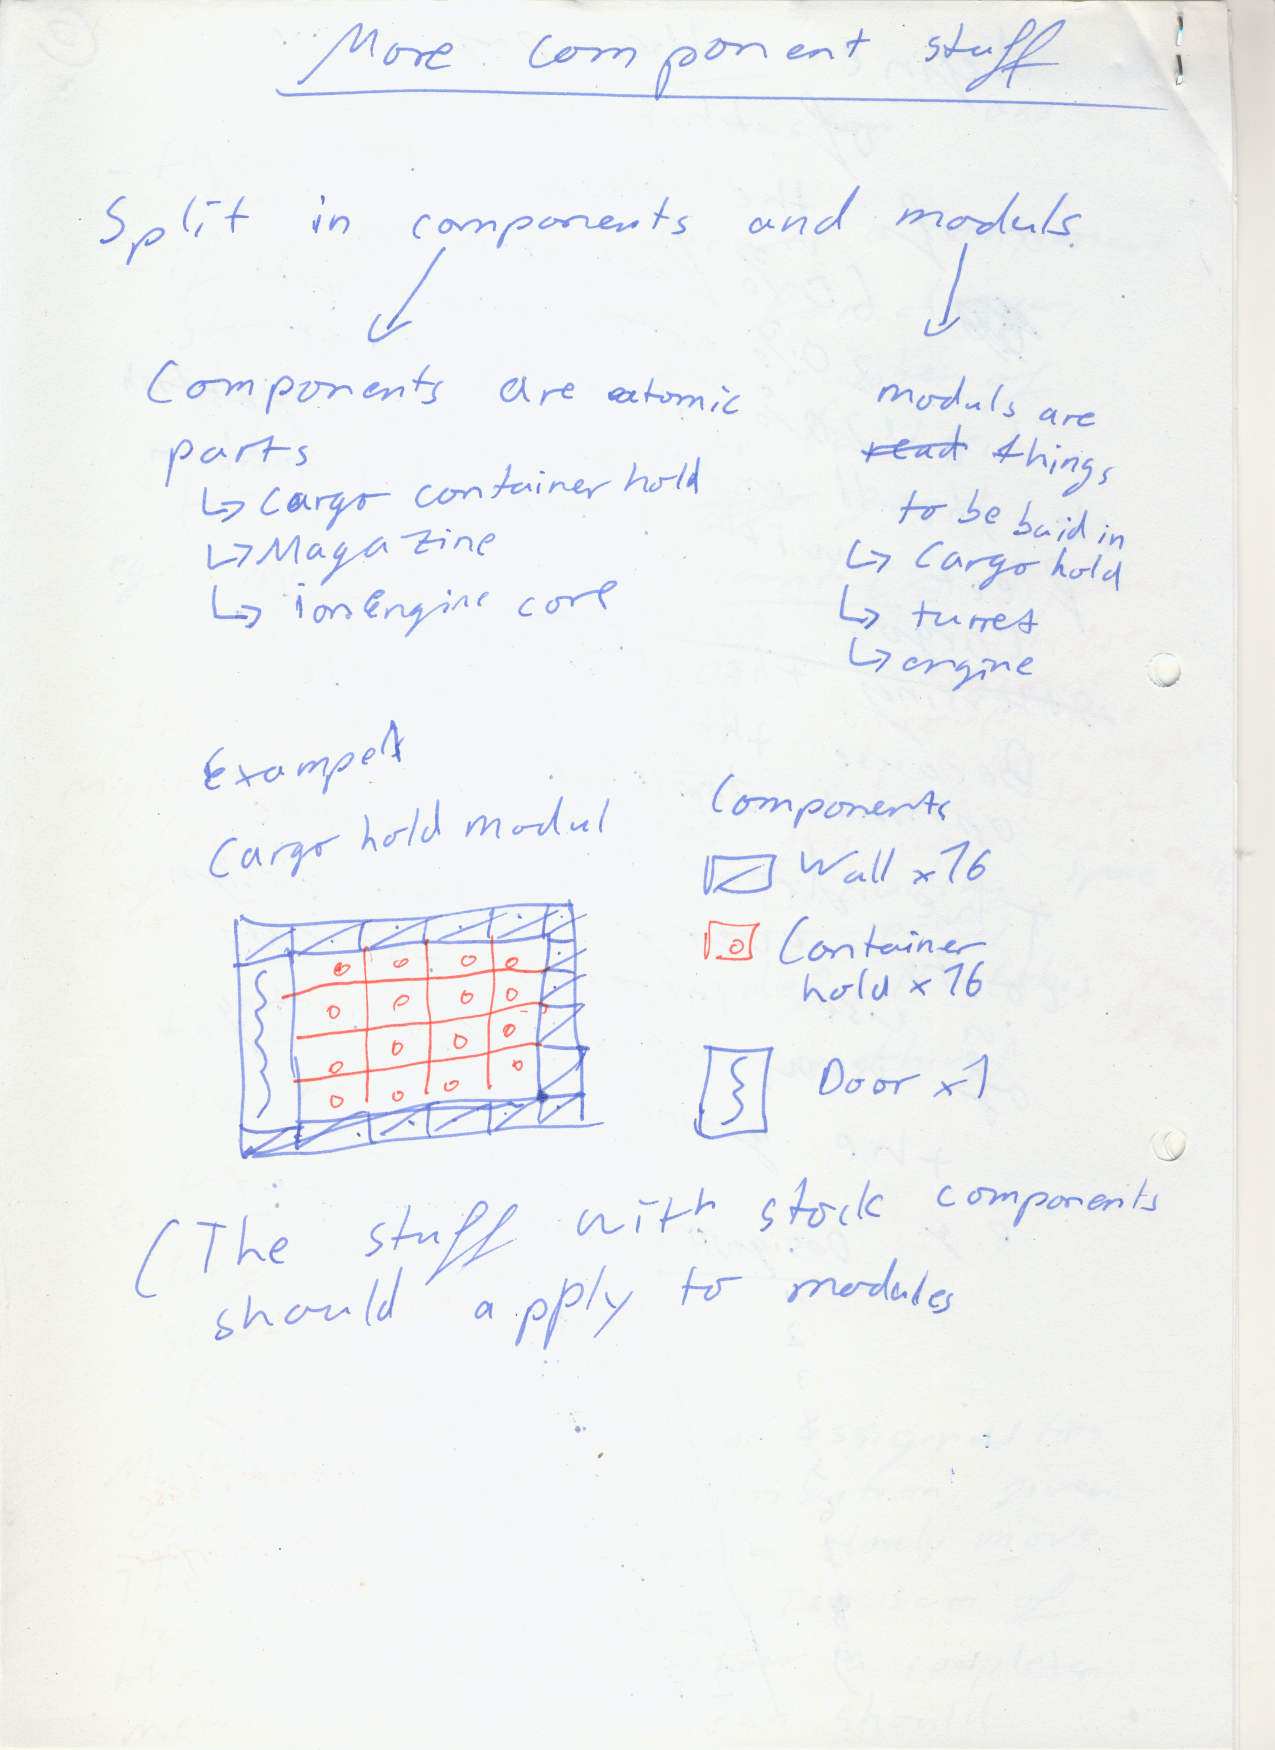 More component stuff
Split in components and moduls
Components are atomic
parts
↳ Cargo container hold
↳ Magazine
↳ ion Engine core
moduls are
read things
to be buid in
↳ Cargo hold
↳ turret
↳ engine
Exampel
Cargo hold modul
Components
Wall x16
Container
hold x16
Door x1
(The stuff with stock components
should apply to modules